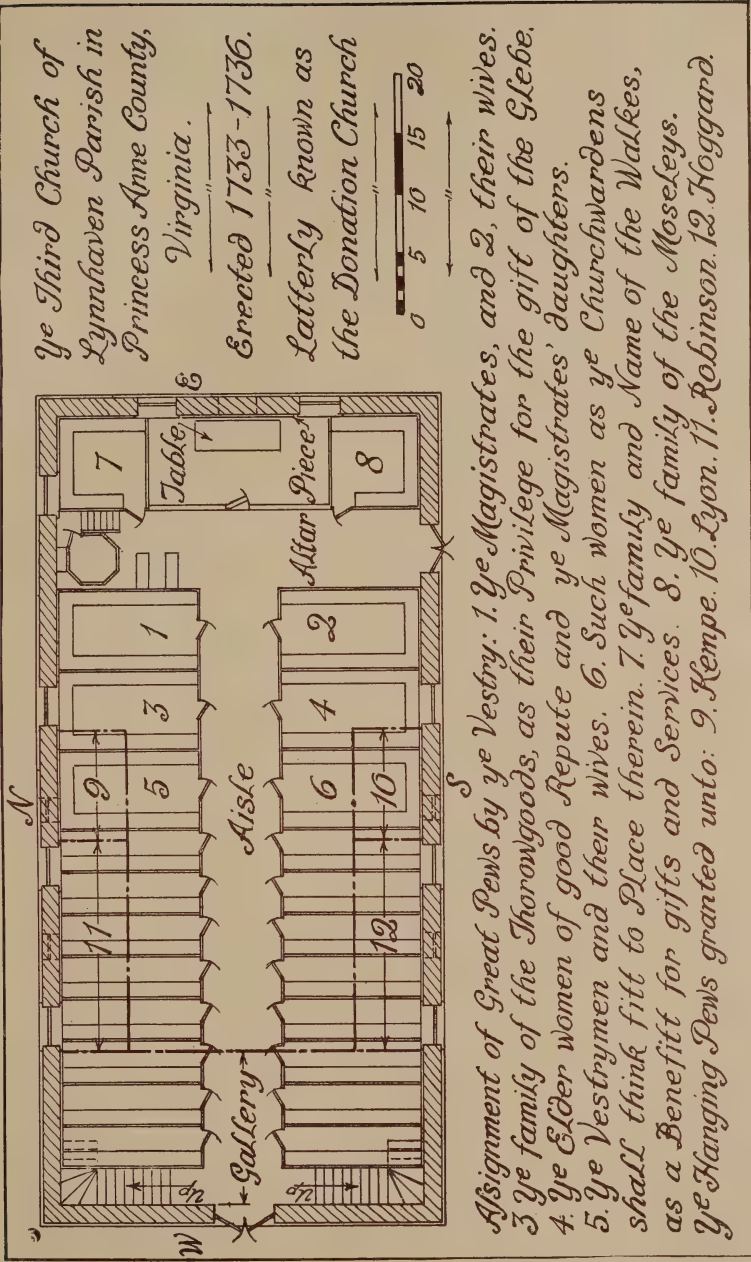 Ye Third Church of
Lynnhaven Parish in
Princess Anne County,
Virginia.
Erected 1733-1736.
Latterly known as
the Donation Church
0 5 10 15 20
N
E
S
W
7
Table
Altar Piece
8
1
2
3
4
9
5
6
10
Aisle
11
12
Gallery
Up
Up
Assignment of Great Pews by ye Vestry: 1. Ye Magistrates, and 2, their wives.
3 Ye family of the Thorowgoods, as their Privilege for the gift of the Glebe.
4. Ye Elder women of good Repute and ye Magistrates' daughters.
5. Ye Vestrymen and their wives. 6. Such women as ye Churchwardens
shall think fitt to Place therein. 7. Ye family and Name of the Walkes,
as a Benefitt for gifts and Services. 8. Ye family of the Moseleys.
Ye Hanging Pews granted unto: 9. Kempe. 10. Lyon. 11. Robinson. 12. Hoggard.